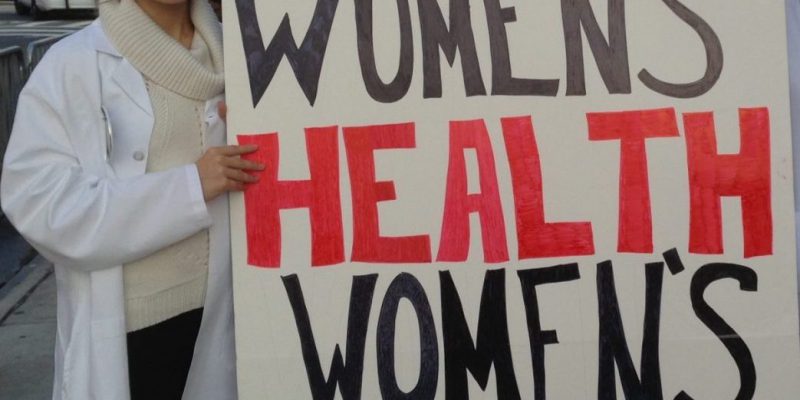 WOMENS
HEALTH
WOMEN'S